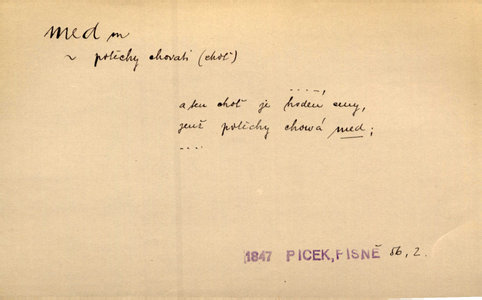 med m
~ potěchy chovati (choť)
....,
a ten choť je hoden ceny,
jenž potěchy chowá med;
....
1847 PICEK, PÍSNĚ 56, 2.